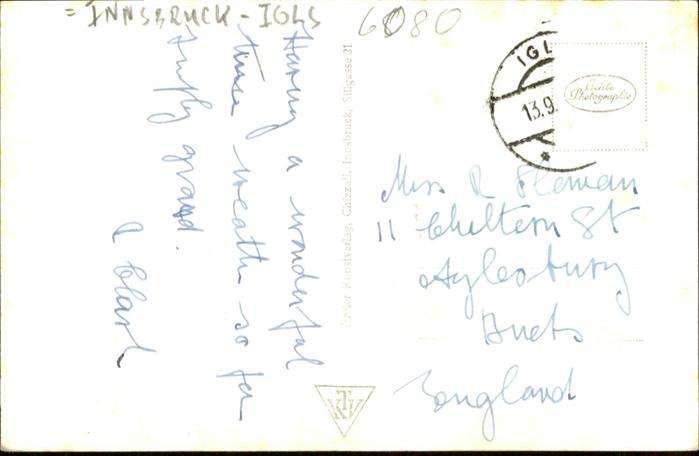 = INNSBRUCK - IGLS
6080
Having a wonderful
time weather so far
simply grand.
A Clark
Tiroler Kunstverlag, Chizzali, Innsbruck, Sillgasse 21
IGL
13.9.
Echte
Photographie
Miss R
11 Chiltern St
Aylesbury
Bucks
England
TKV